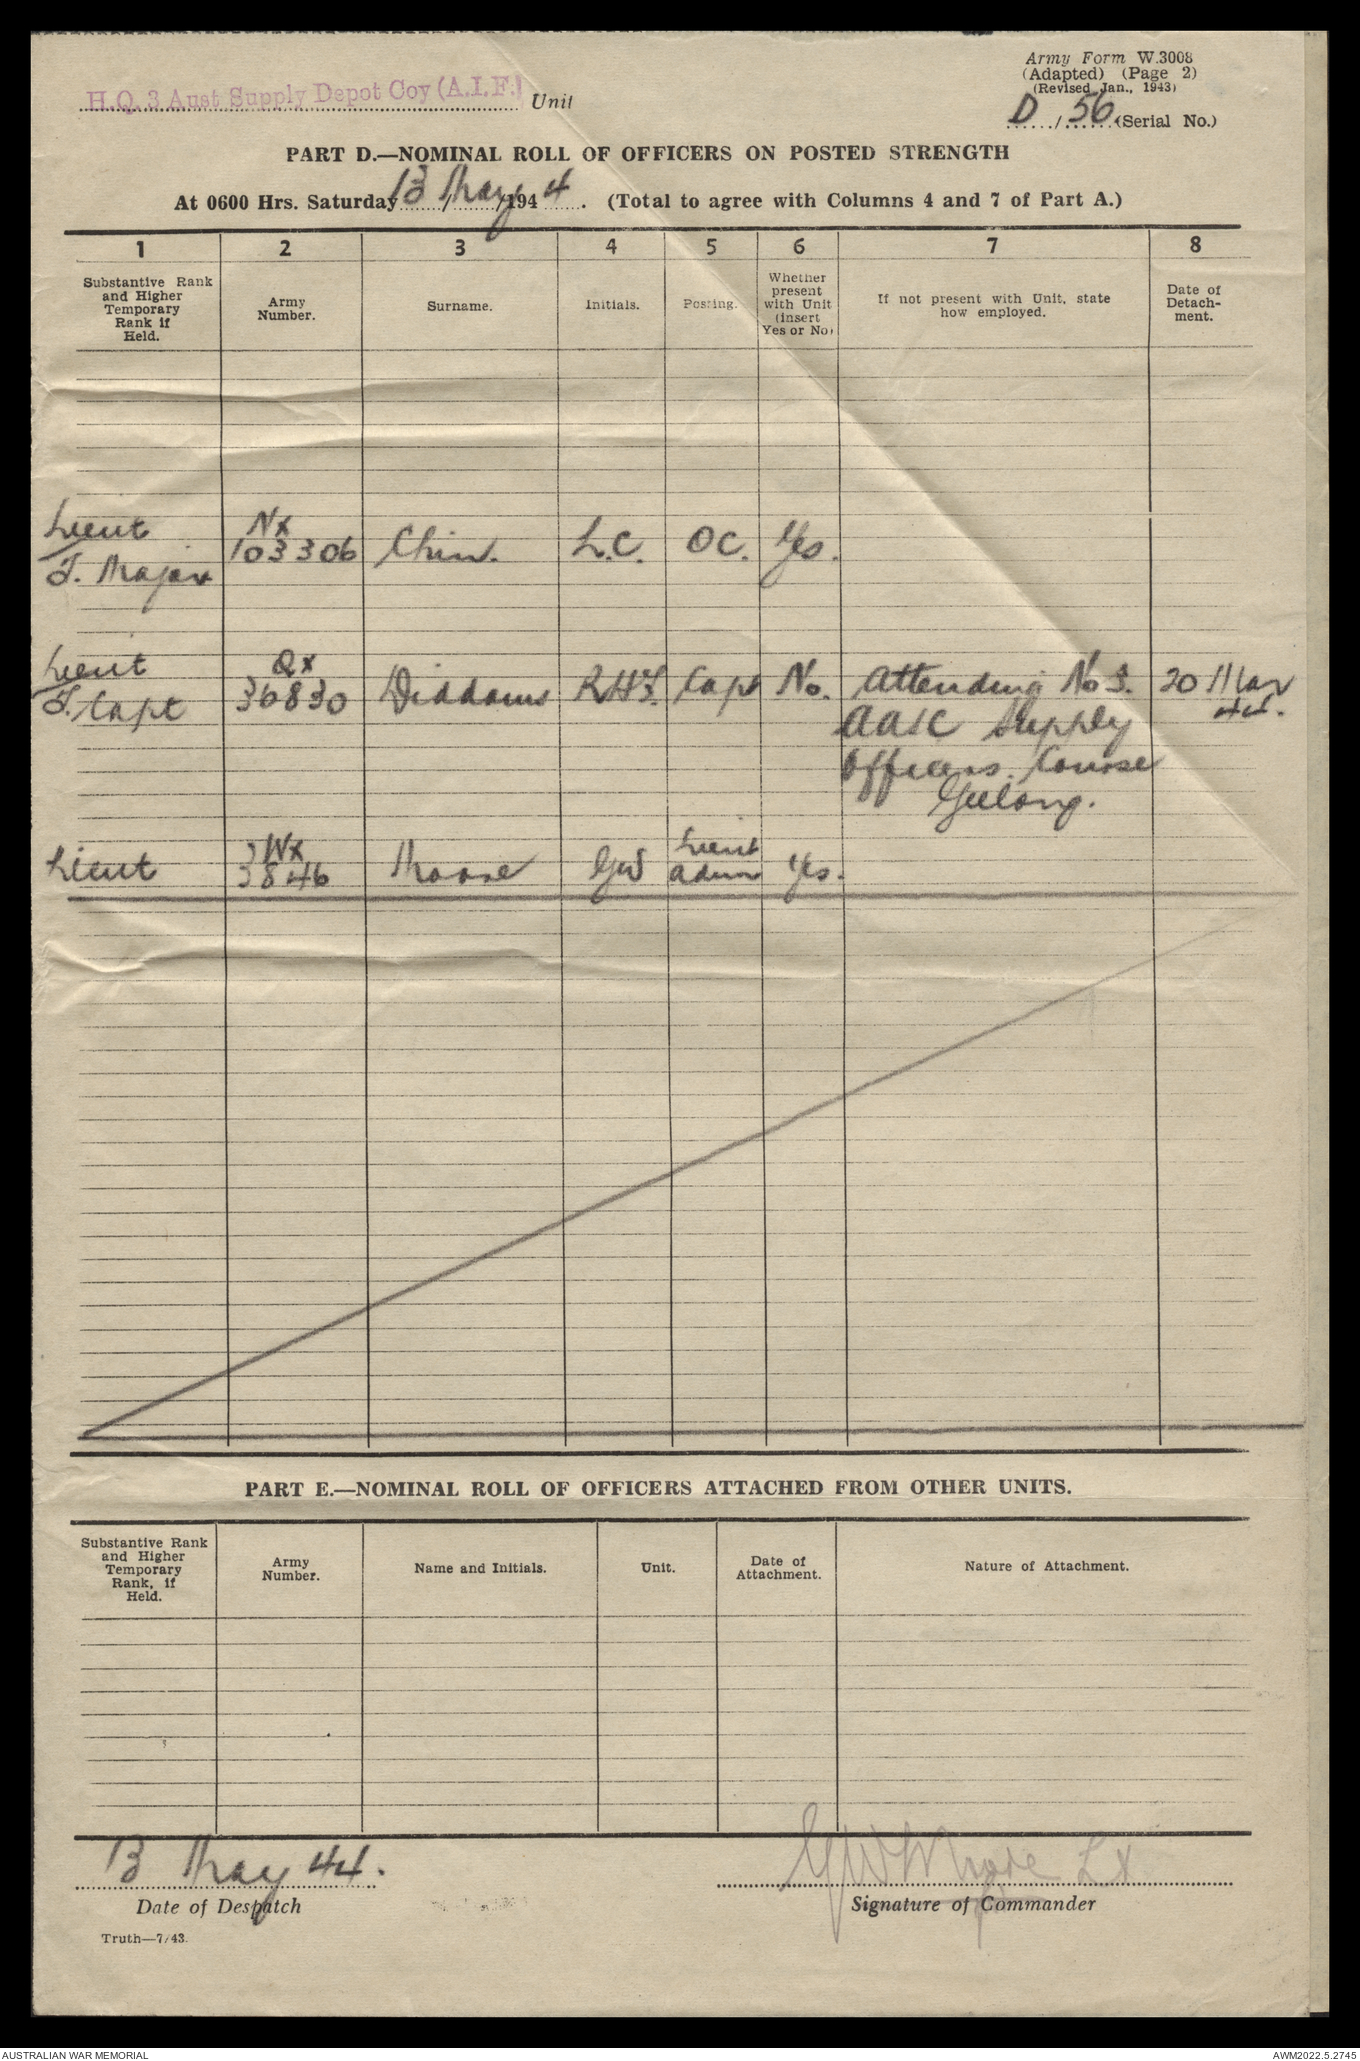 H.Q. 3 Aust Supply Depot Coy (A.I.F.) Unit
Army Form W.3008
(Adapted) (Page 2)
(Revised Jan., 1943)
D / 56 (Serial No.)
PART D.—NOMINAL ROLL OF OFFICERS ON POSTED STRENGTH
At 0600 Hrs. Saturday 13 / May / 1944. (Total to agree with Columns 4 and 7 of Part A.)
1 2 3 4 5 6 7 8
Substantive Rank
and Higher
Temporary
Rank if
Held.
Army
Number.
Surname.
Initials.
Posting.
Whether
present
with Unit
(insert
Yes or No)
If not present with Unit, state
how employed.
Date of
Detach-
ment.
Lieut
T. Major
NX
103306
Chin.
L.C.
OC.
Yes.
Lieut
T. Capt
QX
36830
Diddams
Capt
No.
Attending No 3.
AASC Supply
Officers Course
Geelong.
20 Mar
44.
Lieut
WX
3846
Moore
GW
Lieut
Adm
Yes.
PART E.—NOMINAL ROLL OF OFFICERS ATTACHED FROM OTHER UNITS.
Substantive Rank
and Higher
Temporary
Rank, if
Held.
Army
Number.
Name and Initials.
Unit.
Date of
Attachment.
Nature of Attachment.
13 May 44.
Date of Despatch
GW Moore Lt
Signature of Commander
Truth—7/43.
AUSTRALIAN WAR MEMORIAL
AWM2022.5.2745